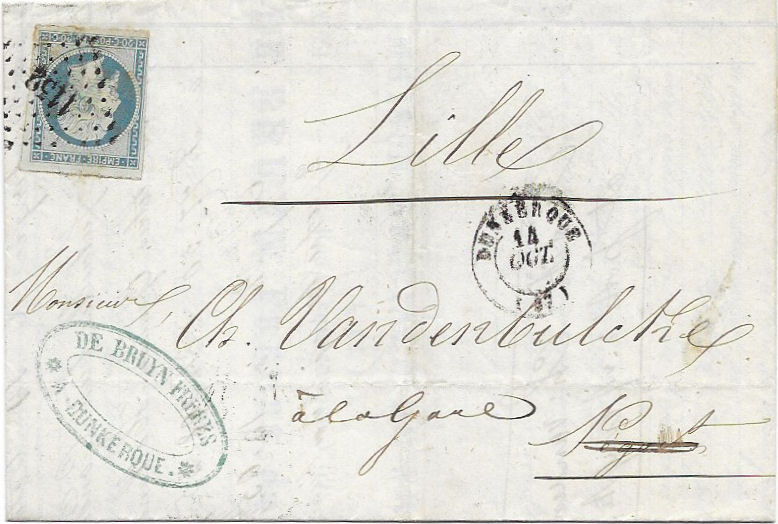 20 C. POSTES 20 C.
1152
EMPIRE FRANC
Lille
DUNKERQUE
14
OCT.
Monsieur
Ch. Vandenbulcke
à la Gare
DE BRUYN FRÈRES
A DUNKERQUE.